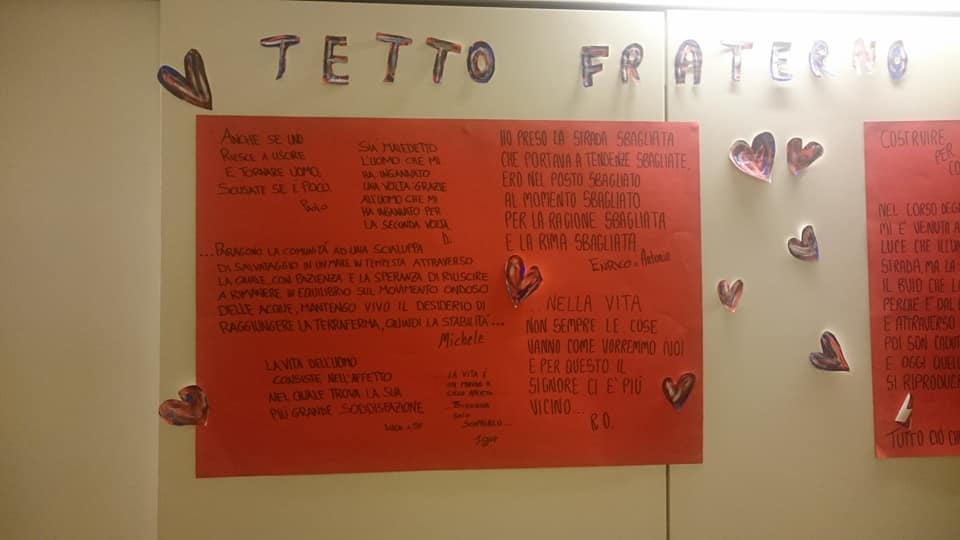 TETTO FRATERNO
ANCHE SE UNO
RIESCE A USCIRE
E TORNARE UOMO,
SCUSATE SE È POCO.
Paolo
SIA MALEDETTO
L'UOMO CHE MI
HA INGANNATO
UNA VOLTA GRAZIE
ALL'UOMO CHE MI
HA INGANNATO PER
LA SECONDA VOLTA
D.
HO PRESO LA STRADA SBAGLIATA
CHE PORTAVA A TENDENZE SBAGLIATE,
ERO NEL POSTO SBAGLIATO
AL MOMENTO SBAGLIATO
PER LA RAGIONE SBAGLIATA
E LA RIMA SBAGLIATA
ENRICO e Antonio
...PARAGONO LA COMUNITÁ AD UNA SCIALUPPA
DI SALVATAGGIO IN UN MARE IN TEMPESTA ATTRAVERSO
LA QUALE, CON PAZIENZA E LA SPERANZA DI RIUSCIRE
A RIMANERE IN EQUILIBRIO SUL MOVIMENTO ONDOSO
DELLE ACQUE, MANTENGO VIVO IL DESIDERIO DI
RAGGIUNGERE LA TERRAFERMA, QUINDI LA STABILITÁ...
Michele
...NELLA VITA
NON SEMPRE LE COSE
VANNO COME VORREMMO NOI
E PER QUESTO IL
SIGNORE CI E' PIÚ
VICINO...
R.O.
LA VITA DELL'UOMO
CONSISTE NELL'AFFETTO
NEL QUALE TROVA LA SUA
PIÚ GRANDE SODDISFAZIONE
LUCA
LA VITA É
UN MONDO A
CIELO APERTO
BISOGNA
SOLO
SCOPRIRLO...
Igor
COSTRUIRE,
PER
CO
NEL CORSO DEGL
MI E' VENUTA A
LUCE CHE ILLUM
STRADA, MA LA
IL BUIO CHE L
PERCHE' E' DAL
E ATTRAVERSO
POI SON CADUT
E OGGI QUELL
SI RIPRODUC
TUTTO CIÓ CH